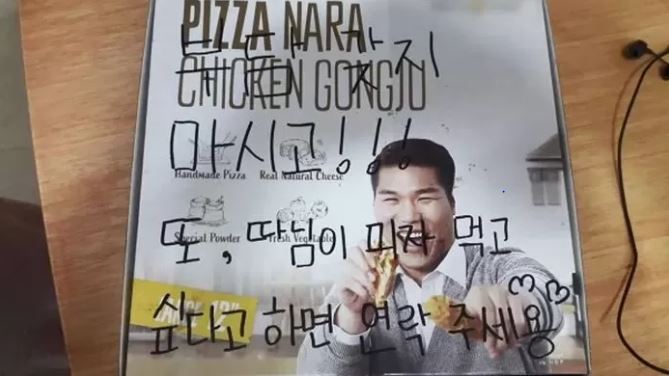 PIZZA NARA
부담 갖지
CHICKEN GONGJU
마시고!!!
Handmade Pizza Real Natural Cheese
Special Powder Fresh Vegetable
또, 따님이 피자 먹고
싶다고 하면 연락 주세용